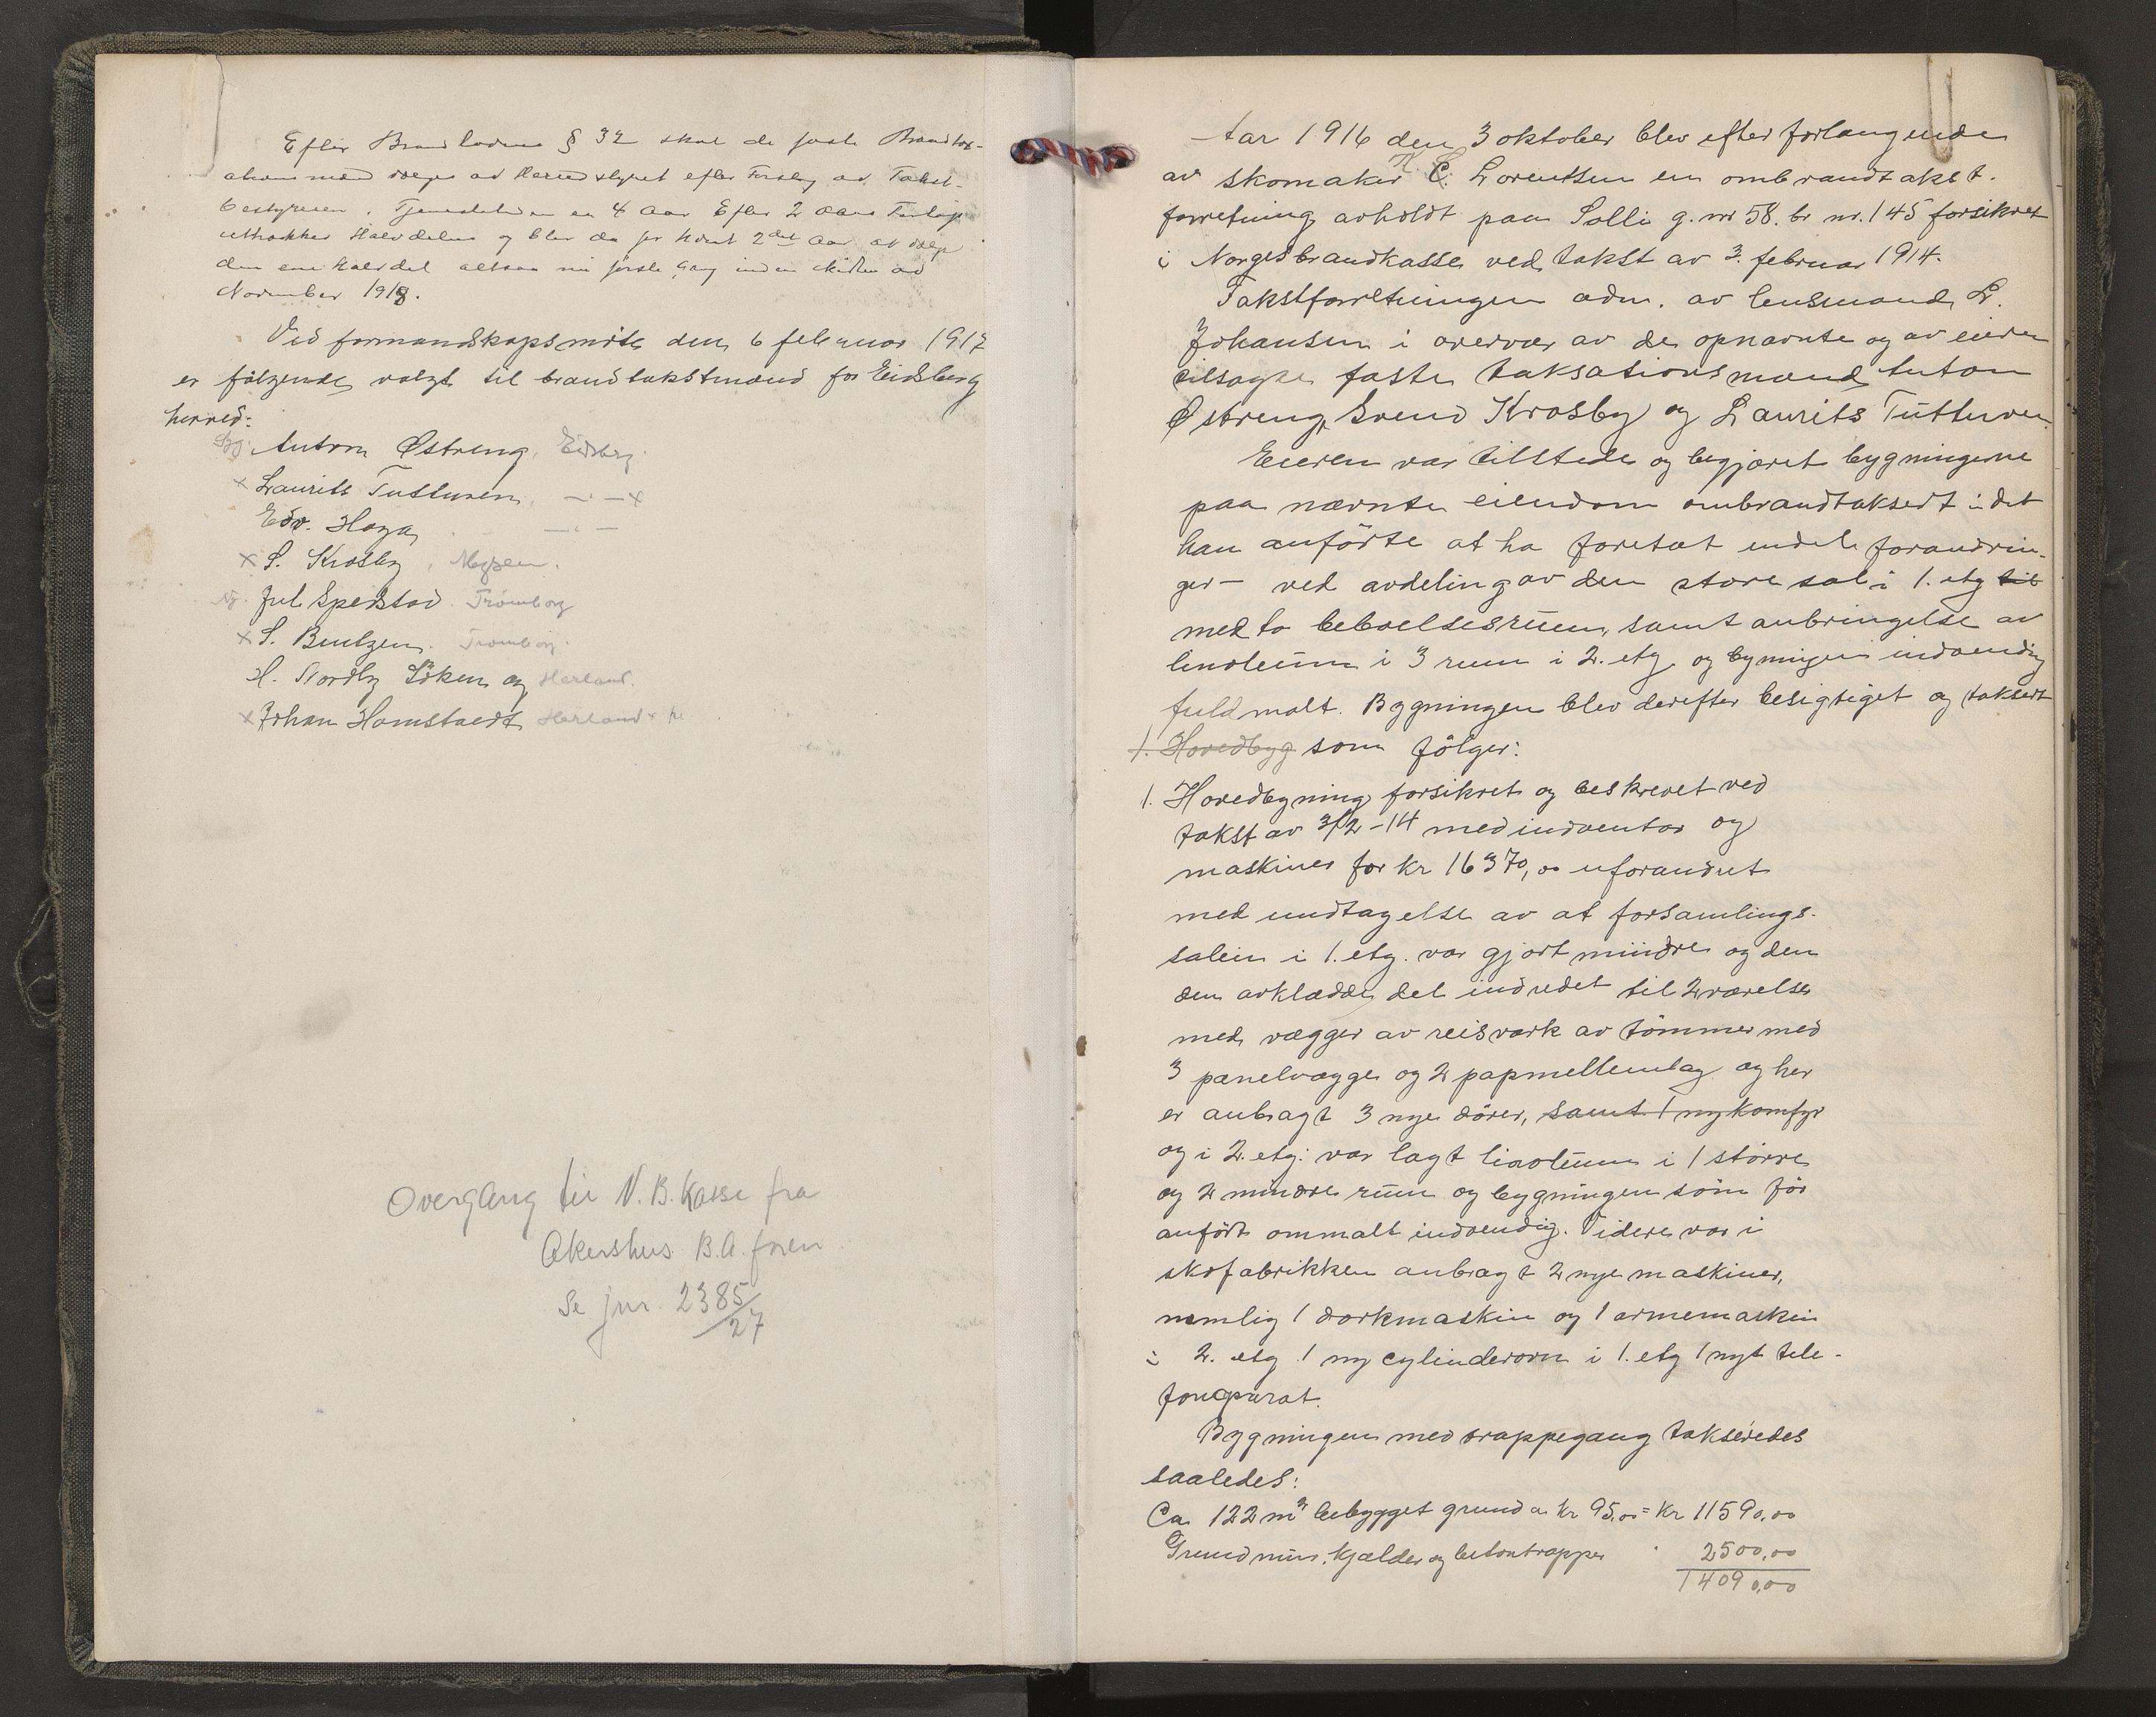 Efter Brandlovens § 32 skal de faste Brandtak-
stmænd vælges av Herredstyret efter Forslag av Takst-
bestyreren. Tjenestetiden er 4 Aar Efter 2 Aars Forløp
uttrækker Halvdelen og blir da for hvert 2det Aar at vælge
den ene halvdel altsaa nu første Gang inden Midten av
November 1918.
Ved formandskapsmöte den 6 februar 1917
er fölgende valgt til brandtakstmænd for Eidsberg
herred:
Anton Østreng, Eidsberg.
x Laurits Tutturen, — " — x
Edv. Haga, — " —
x S. Krosby, Mysen.
Jul. Sperstad. Trömborg
x S. Bentzen. Tromborg.
H. Nordby Söken og Herland.
x Johan Hamstaedt Herland x
Overgang til N.B. Kasse fra
Akershus B.A. foren
Se jnr. 2385/27
Aar 1916 den 3 oktober blev efter forlangende
av skomaker K. C. Lorentsen en ombrandtakst-
forretning avholdt paa Solli g. nr 58. br nr. 145 forsikret
i Norges brandkasse ved takst av 3. februar 1914.
Takstforretningen adm. av lensmand L.
Johansen i overvær av de opnævnte og av eieren
tilsagte faste taksationsmænd Anton
Østreng, Svend Krosby og Laurits Tutturen.
Eieren var tilstede og begjæret bygningerne
paa nævnte eiendom ombrandtaksert i det
han anförte at ha foretat endel forandrin-
ger — ved avdeling av den store sal i 1. etg til
med to beboelsesrum, samt anbringelse av
linoleum i 3 rum i 2. etg, og bymingen indvendig
fuld malt. Bygningen blev derefter besigtiget og taksert
1. Hovedbyg som fölger:
1. Hovedbyning forsikret og beskrevet ved
takst av 3/2-14 med indventar og
maskiner for kr 16370,00 uforandret
med undtagelse av at forsamlings-
salein i 1. etg. var gjort mindre og den
den avklædde del indredet til 2 værelser
med vægger av reisværk av tömmer med
3 panelvægge og 2 papmellemlag og her
er anbragt 3 nye dörer, samt 1 ny komfyr
og i 2. etg: var lagt linoleum i 1 större
og 2 mindre rum og bygningen som för
anfört ommalt indvendig. Videre var i
skofabrikken anbragt 2 nye maskiner,
nemlig 1 dorkmaskin og 1 armemaskin
i 2. etg 1 ny cylinderovn i 1. etg 1 nyt tele-
fonaparat.
Bygningen med trappegang takseredes
saaledes:
Ca 122 m² bebygget grund a kr 95,00 = kr 11590,00
Grundmur, kjælder og betontrapper " 2500,00
14090,00